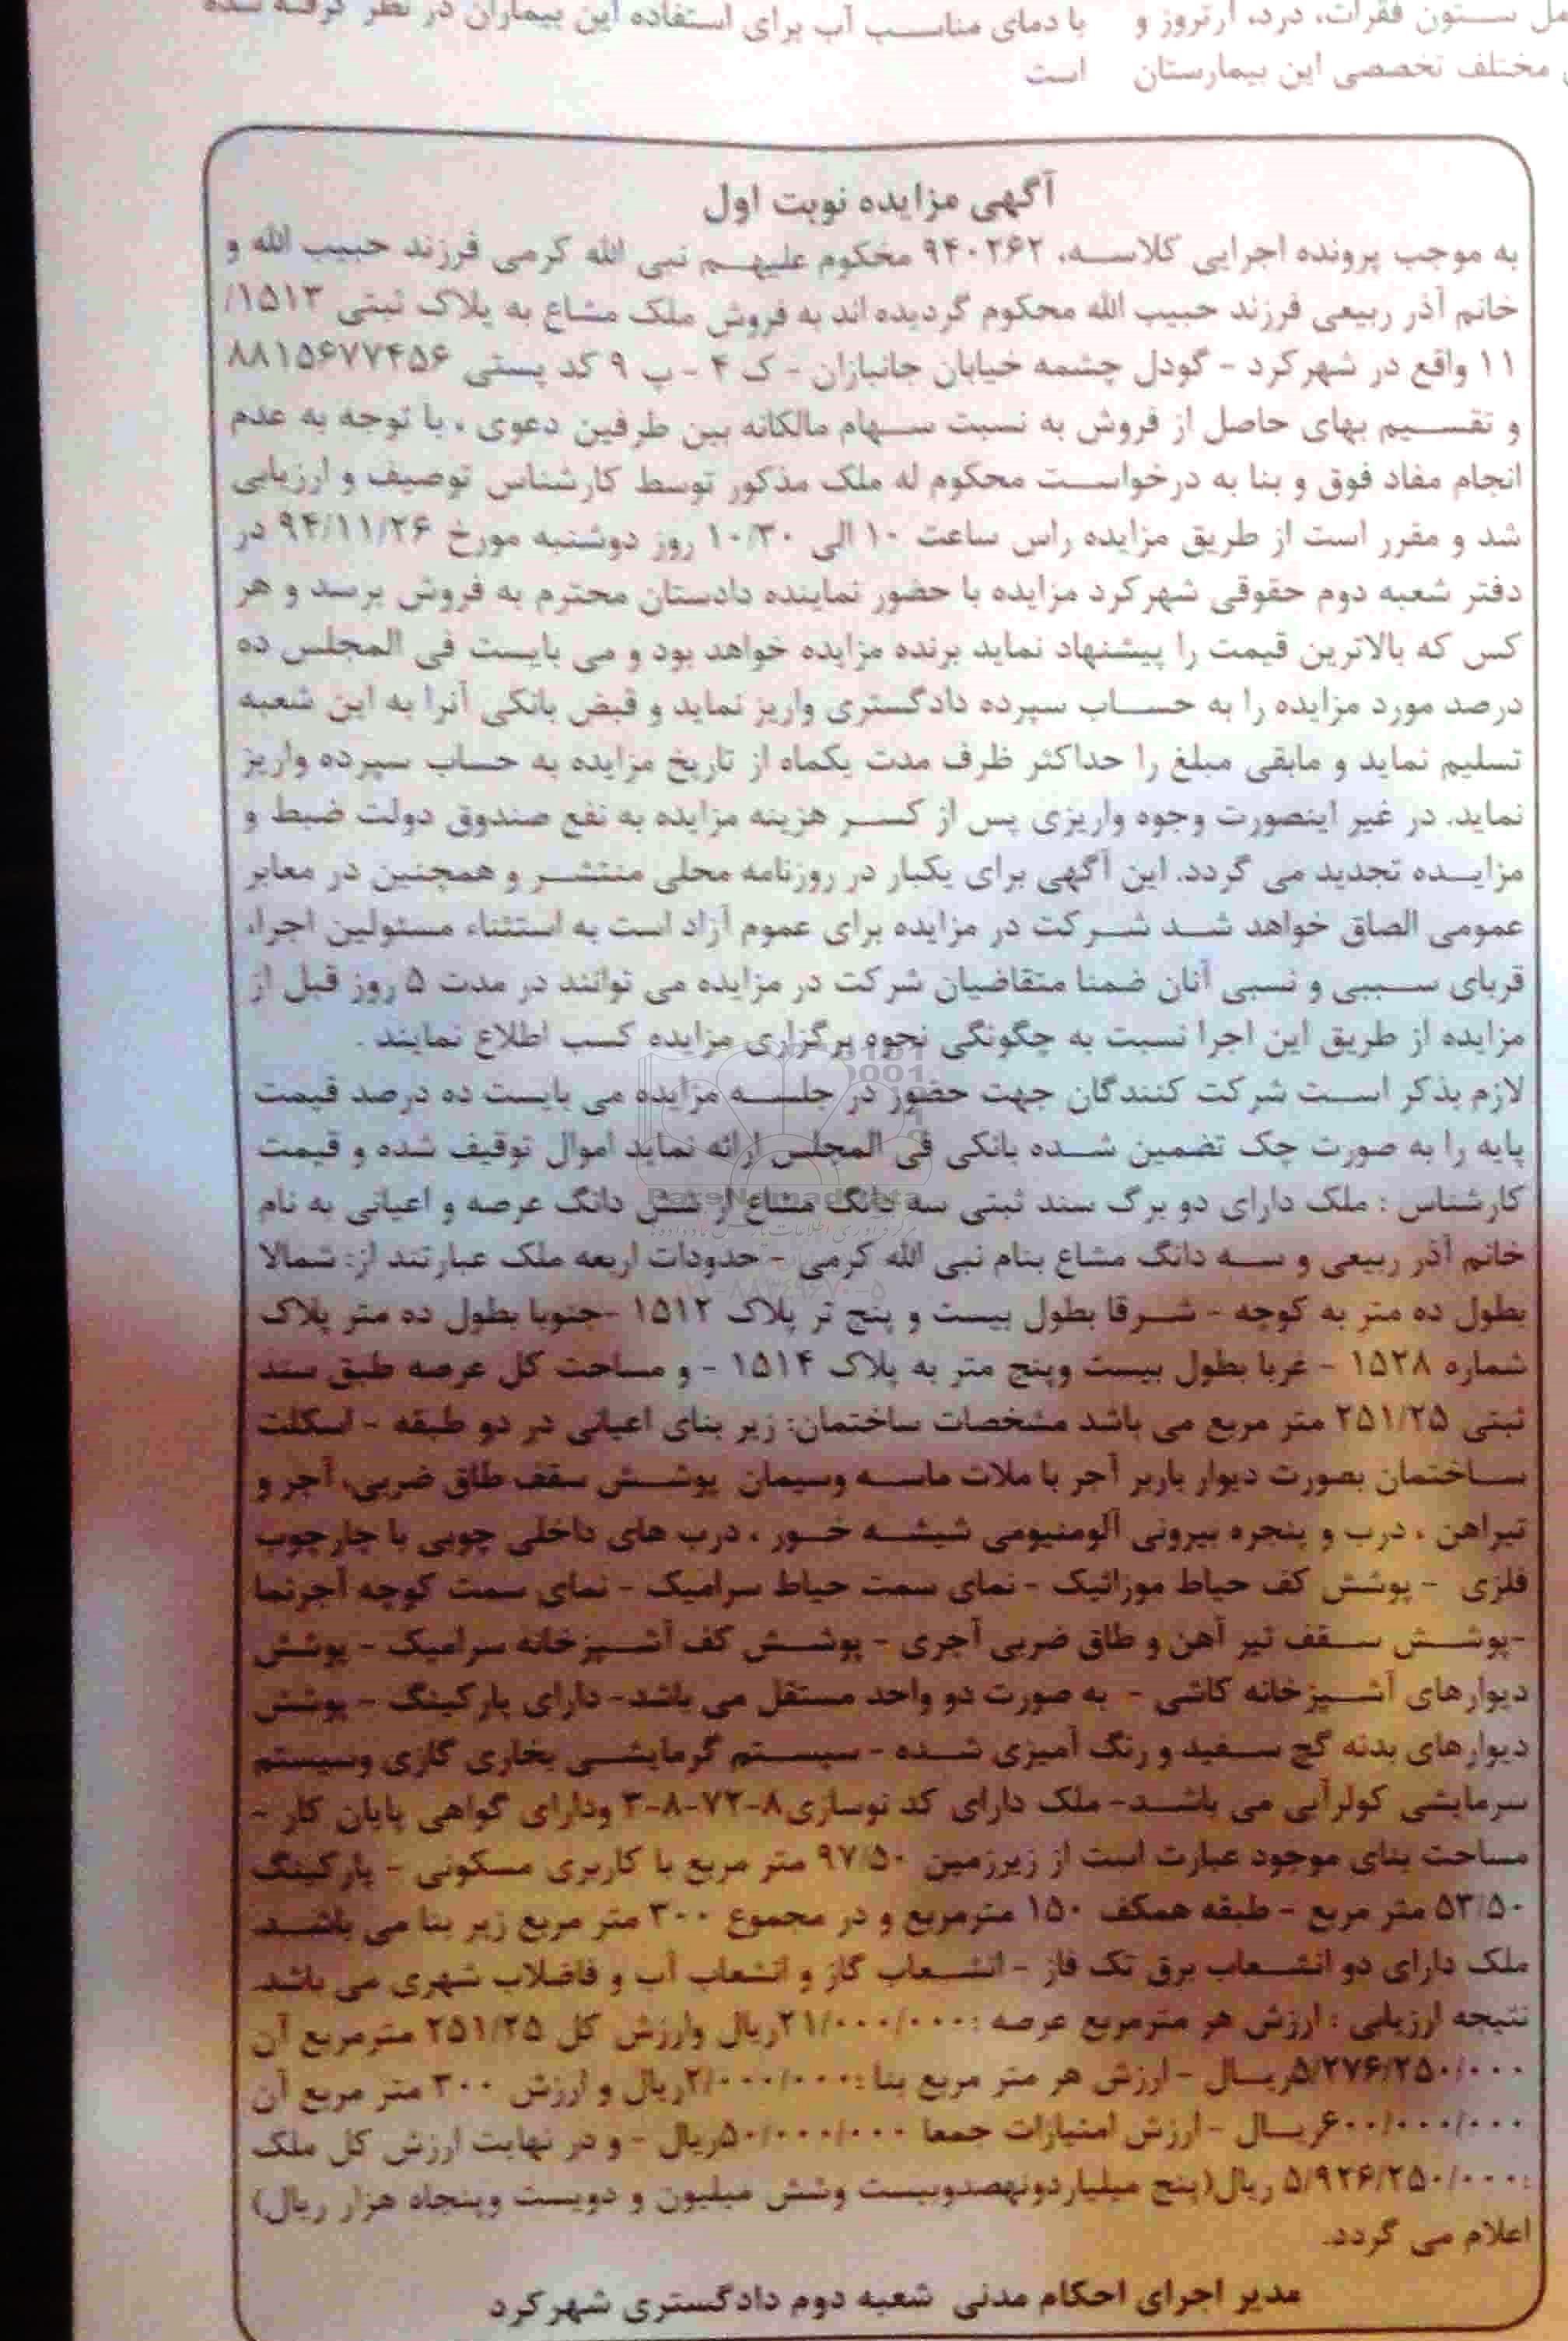 مل ستون فقرات، درد، آرتروز و
ی مختلف تخصصی این بیمارستان
با دمای مناسب آب برای استفاده این بیماران در نظر گرفته شده
است
آگهی مزایده نوبت اول
به موجب پرونده اجرایی کلاسه، ۹۴۰۲۶۲ محکوم علیهم نبی الله کرمی فرزند حبیب الله و
خانم آذر ربیعی فرزند حبیب الله محکوم گردیده اند به فروش ملک مشاع به پلاک ثبتی ۱۵۱۳/
۱۱ واقع در شهرکرد - گودل چشمه خیابان جانبازان - ک ۴ - پ ۹ کد پستی ۸۸۱۵۶۷۷۴۵۶
و تقسیم بهای حاصل از فروش به نسبت سهام مالکانه بین طرفین دعوی ، با توجه به عدم
انجام مفاد فوق و بنا به درخواست محکوم له ملک مذکور توسط کارشناس توصیف و ارزیابی
شد و مقرر است از طریق مزایده راس ساعت ۱۰ الی ۱۰/۳۰ روز دوشنبه مورخ ۹۴/۱۱/۲۶ در
دفتر شعبه دوم حقوقی شهرکرد مزایده با حضور نماینده دادستان محترم به فروش برسد و هر
کس که بالاترین قیمت را پیشنهاد نماید برنده مزایده خواهد بود و می بایست فی المجلس ده
درصد مورد مزایده را به حساب سپرده دادگستری واریز نماید و قبض بانکی آنرا به این شعبه
تسلیم نماید و مابقی مبلغ را حداکثر ظرف مدت یکماه از تاریخ مزایده به حساب سپرده واریز
نماید. در غیر اینصورت وجوه واریزی پس از کسر هزینه مزایده به نفع صندوق دولت ضبط و
مزایده تجدید می گردد. این آگهی برای یکبار در روزنامه محلی منتشر و همچنین در معابر
عمومی الصاق خواهد شد شرکت در مزایده برای عموم آزاد است به استثناء مسئولین اجرا،
قربای سببی و نسبی آنان ضمنا متقاضیان شرکت در مزایده می توانند در مدت ۵ روز قبل از
مزایده از طریق این اجرا نسبت به چگونگی نحوه برگزاری مزایده کسب اطلاع نمایند .
لازم بذکر است شرکت کنندگان جهت حضور در جلسه مزایده می بایست ده درصد قیمت
پایه را به صورت چک تضمین شده بانکی فی المجلس ارائه نماید اموال توقیف شده و قیمت
کارشناس : ملک دارای دو برگ سند ثبتی سه دانگ مشاع از شش دانگ عرصه و اعیانی به نام
خانم آذر ربیعی و سه دانگ مشاع بنام نبی الله کرمی - حدودات اربعه ملک عبارتند از: شمالا
بطول ده متر به کوچه - شرقا بطول بیست و پنج تر پلاک ۱۵۱۲ -جنوبا بطول ده متر پلاک
شماره ۱۵۲۸ - غربا بطول بیست وپنج متر به پلاک ۱۵۱۴ - و مساحت کل عرصه طبق سند
ثبتی ۲۵۱/۲۵ متر مربع می باشد مشخصات ساختمان: زیر بنای اعیانی در دو طبقه - اسکلت
ساختمان بصورت دیوار باربر آجر با ملات ماسه وسیمان پوشش سقف طاق ضربی، آجر و
تیراهن ، درب و پنجره بیرونی آلومنیومی شیشه خور ، درب های داخلی چوبی با چارچوب
فلزی - پوشش کف حیاط موزائیک - نمای سمت حیاط سرامیک - نمای سمت کوچه آجرنما
-پوشش سقف تیر آهن و طاق ضربی آجری - پوشش کف آشپزخانه سرامیک - پوشش
دیوارهای آشپزخانه کاشی - به صورت دو واحد مستقل می باشد- دارای پارکینگ - پوشش
دیوارهای بدنه گچ سفید و رنگ آمیزی شده - سیستم گرمایشی بخاری گازی وسیستم
سرمایشی کولرآبی می باشد- ملک دارای کد نوسازی۸-۷۲-۸-۳ ودارای گواهی پایان کار -
مساحت بنای موجود عبارت است از زیرزمین ۹۷/۵۰ متر مربع با کاربری مسکونی - پارکینگ
۵۳/۵۰ متر مربع - طبقه همکف ۱۵۰ مترمربع و در مجموع ۳۰۰ متر مربع زیر بنا می باشد.
ملک دارای دو انشعاب برق تک فاز - انشعاب گاز و انشعاب آب و فاضلاب شهری می باشد.
نتیجه ارزیابی : ارزش هر مترمربع عرصه :۲۱/۰۰۰/۰۰۰ریال وارزش کل ۲۵۱/۲۵ مترمربع آن
۵/۲۷۶/۲۵۰/۰۰۰ریال - ارزش هر متر مربع بنا :۲/۰۰۰/۰۰۰ریال و ارزش ۳۰۰ متر مربع آن
۶۰۰/۰۰۰/۰۰۰ریال - ارزش امتیازات جمعا ۵۰/۰۰۰/۰۰۰ریال - و در نهایت ارزش کل ملک
:۵/۹۲۶/۲۵۰/۰۰۰ ریال(پنج میلیاردونهصدوبیست وشش میلیون و دویست وپنجاه هزار ریال)
اعلام می گردد.
مدیر اجرای احکام مدنی شعبه دوم دادگستری شهرکرد